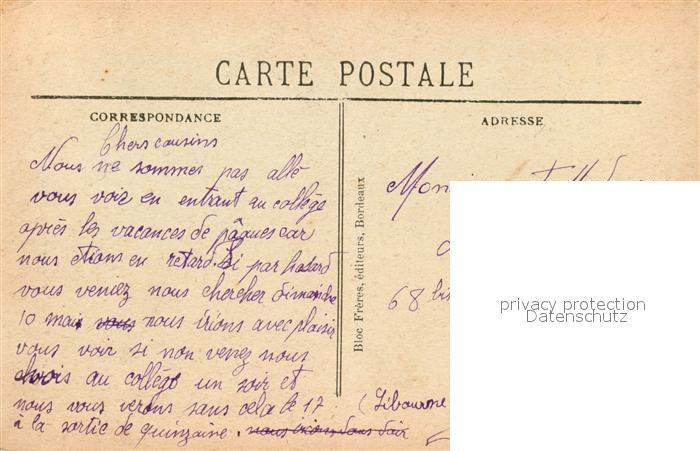 CARTE POSTALE
CORRESPONDANCE
Chers cousins
Nous ne sommes pas allé
vous voir en entrant au collège
après les vacances de pâques car
nous étions en retard. Si par hasard
vous veniez nous chercher dimanche
10 mai vous nous irions avec plaisir
vous voir si non venez nous
au collège un soir et
nous vous verons sans cela le 17
à la sortie de quinzaine.
Bloc Frères, éditeurs, Bordeaux
ADRESSE
68 bis
(Libourne
privacy protection
Datenschutz